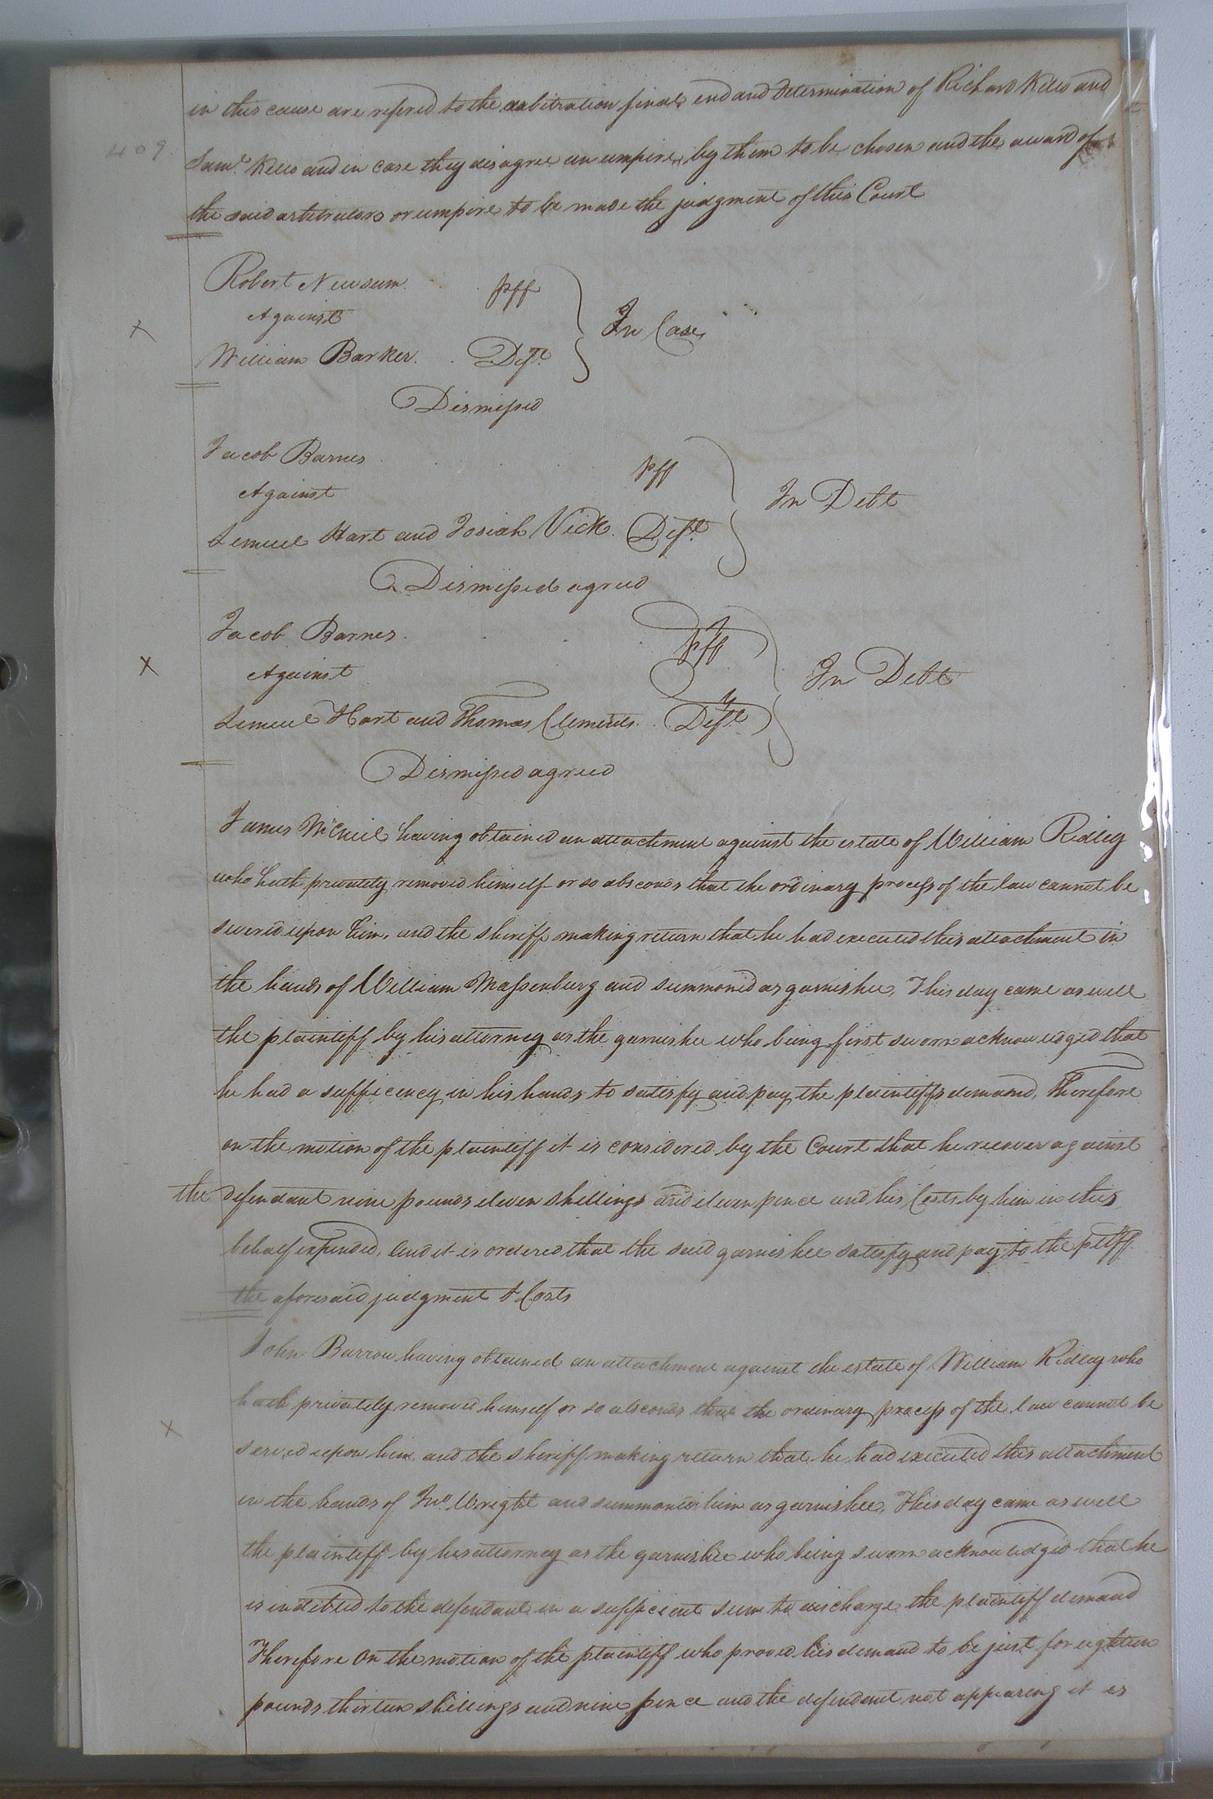 in this cause are refered to the arbitration final end and determination of Richard Kello and
409
Saml. Kello and in case they disagree an umpire by them to be chosen and the award of
the said arbitrators or umpire to be made the judgment of this Court
Robert Newsum pff
Against
In Case
William Barker Deft.
Dismissed
Jacob Barnes pff
Against
In Debt
Lemuel Hart and Josiah Vick Deft.
Dismissed agreed
Jacob Barnes pff
Against
In Debt
Lemuel Hart and Thomas Clements Deft.
Dismissed agreed
James McNeil having obtained an attachment against the estate of William Ridley
who hath privately removed himself or so absconds that the ordinary process of the law cannot be
served upon him, and the sheriff making return that he had executed this attachment in
the hands of William Massenburg and summoned as garnishee, This day came as well
the plaintiff by his attorney as the garnishee who being first sworn acknowledged that
he had a sufficency in his hands to satisfy and pay the plaintiffs demand, Therefore
on the motion of the plaintiff it is considered by the Court that he recover against
the defendant nine pounds eleven shillings and eleven pence and his Costs by him in this
behalf expended, And it is ordered that the said garnishee satisfy and pay to the pltff
the aforesaid judgment & Costs
John Barrow having obtained an attachment against the estate of William Ridley who
hath privately removed himself or so absconds that the ordinary process of the law cannot be
served upon him and the sheriff making return that he had executed this attachment
in the hands of Jno. Wright and summoned him as garnishee, This day came as well
the plaintiff by his attorney as the garnishee who being sworn acknowledged that he
is indebted to the defendant in a sufficient sum to discharge the plaintiff demand
Therefore On the motion of the plaintiff who proved his demand to be just for eighteen
pounds thirteen shillings and nine pence and the defendant not appearing it is